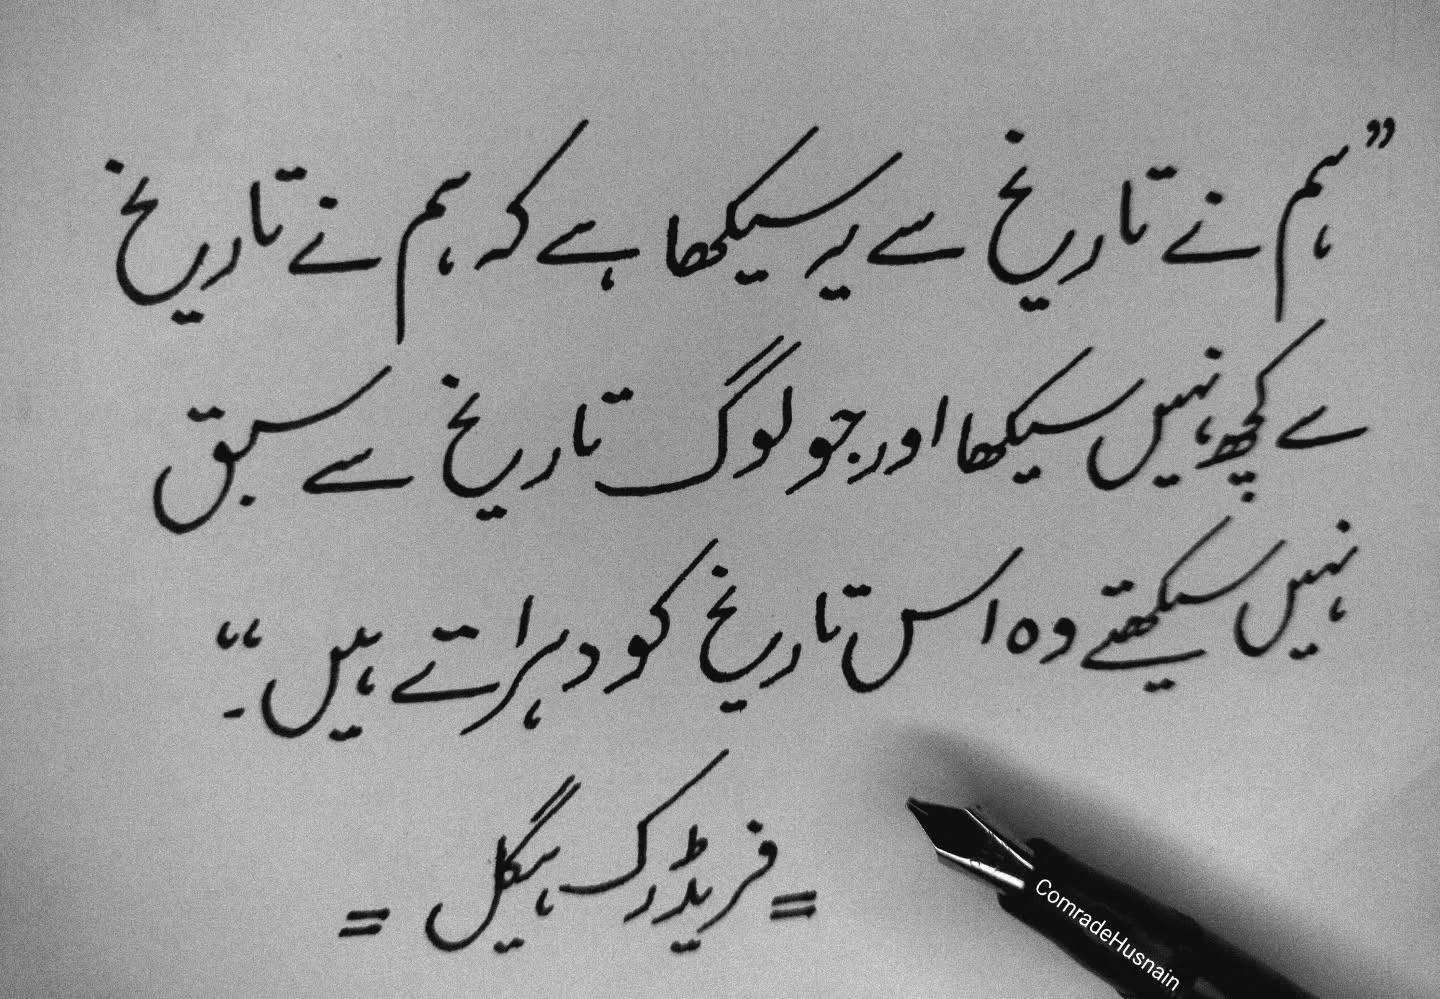 ”ہم نے تاریخ سے یہ سیکھا ہے کہ ہم نے تاریخ
سے کچھ نہیں سیکھا اور جو لوگ تاریخ سے سبق
نہیں سیکھتے وہ اس تاریخ کو دہراتے ہیں۔“
= فریڈرک ہیگل =
ComradeHusnain